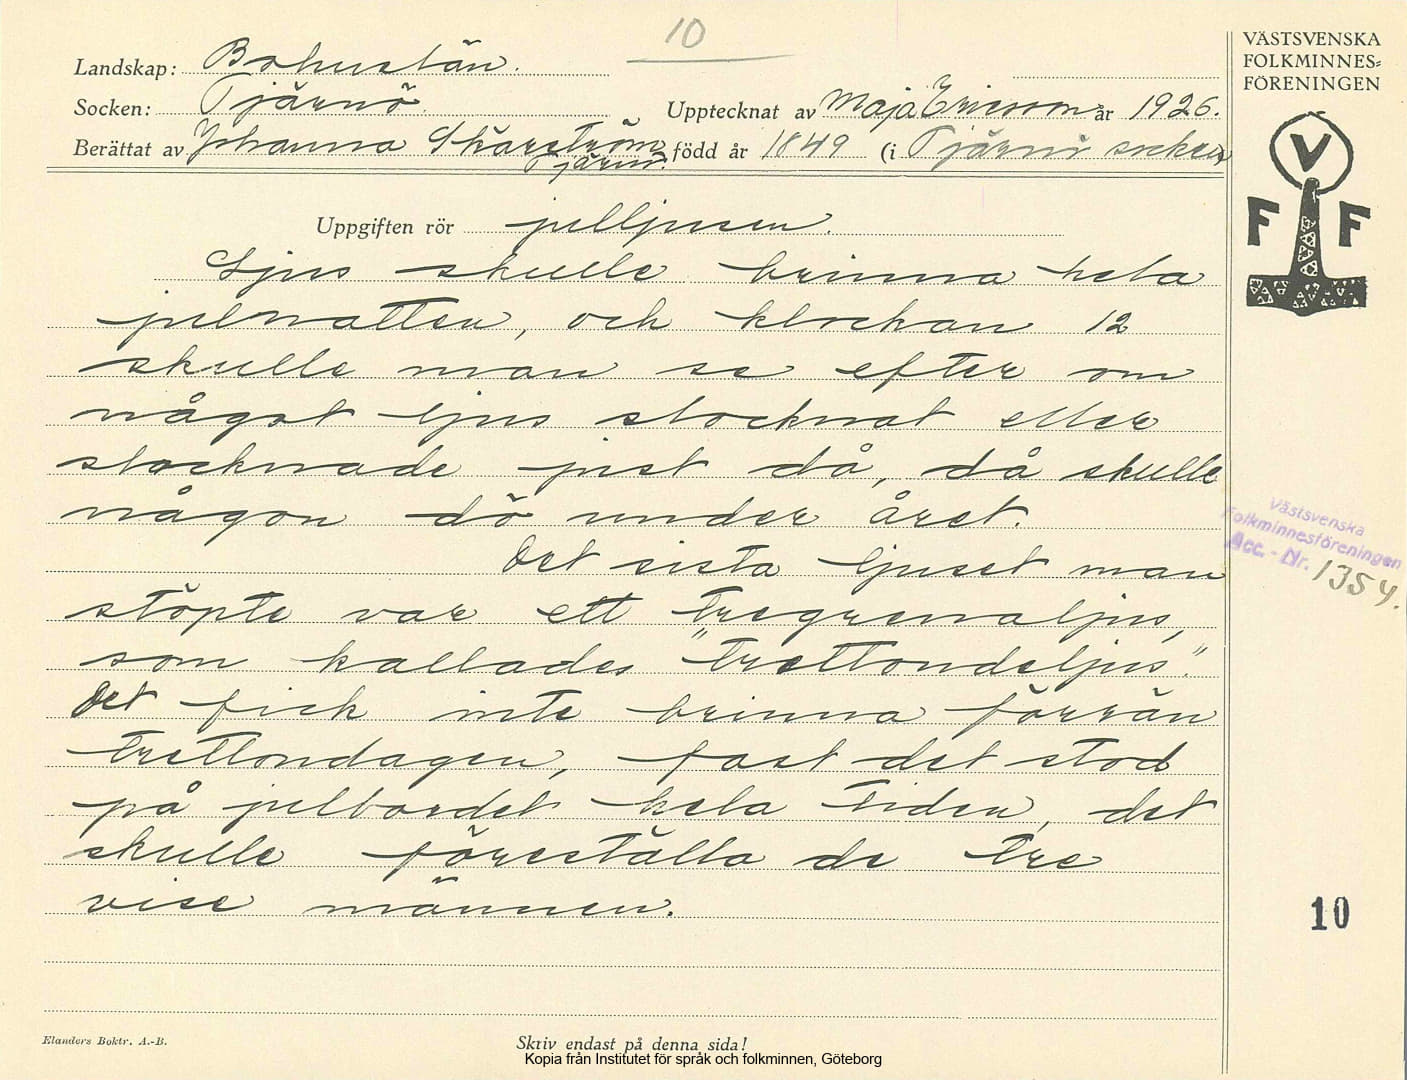 10
Landskap: Bohuslän.
Socken: Tjärnö.
Upptecknat av Maja Ericson år 1926.
Berättat av Johanna Skärström, född år 1849 (i Tjärnö socken
Tjärnö.
VÄSTSVENSKA
FOLKMINNES=
FÖRENINGEN
V
F F
Uppgiften rör julljusen.
Ljus skulle brinna hela
julnatten, och klockan 12
skulle man se efter om
något ljus slocknat eller
slocknade just då, då skulle
någon dö under året.
Det sista ljuset man
stöpte var ett tregrenaljus,
som kallades "trettondeljus".
Det fick inte brinna förrän
trettondagen, fast det stod
på julbordet hela tiden, det
skulle föreställa de tre
vise männen.
Västsvenska
Folkminnesföreningen
Acc. - Nr. 1354.
10
Elanders Boktr. A.-B.
Skriv endast på denna sida!
Kopia från Institutet för språk och folkminnen, Göteborg